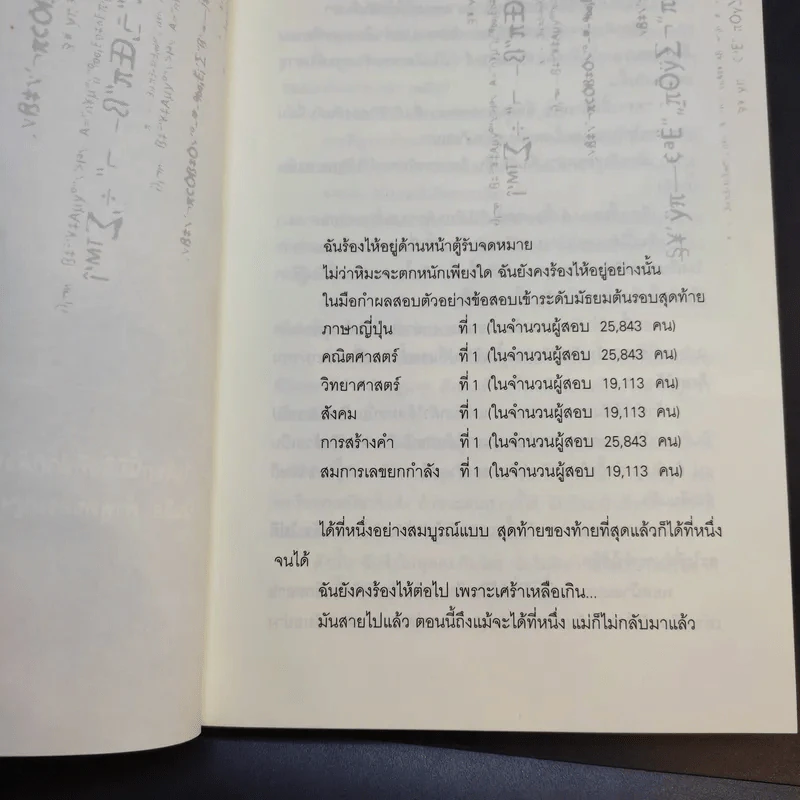 ฉันร้องไห้อยู่ด้านหน้าตู้รับจดหมาย
ไม่ว่าหิมะจะตกหนักเพียงใด ฉันยังคงร้องไห้อยู่อย่างนั้น
ในมือกำผลสอบตัวอย่างข้อสอบเข้าระดับมัธยมต้นรอบสุดท้าย
ภาษาญี่ปุ่น ที่ 1 (ในจำนวนผู้สอบ 25,843 คน)
คณิตศาสตร์ ที่ 1 (ในจำนวนผู้สอบ 25,843 คน)
วิทยาศาสตร์ ที่ 1 (ในจำนวนผู้สอบ 19,113 คน)
สังคม ที่ 1 (ในจำนวนผู้สอบ 19,113 คน)
การสร้างคำ ที่ 1 (ในจำนวนผู้สอบ 25,843 คน)
สมการเลขยกกำลัง ที่ 1 (ในจำนวนผู้สอบ 19,113 คน)
ได้ที่หนึ่งอย่างสมบูรณ์แบบ สุดท้ายของท้ายที่สุดแล้วก็ได้ที่หนึ่ง
จนได้
ฉันยังคงร้องไห้ต่อไป เพราะเศร้าเหลือเกิน...
มันสายไปแล้ว ตอนนี้ถึงแม้จะได้ที่หนึ่ง แม่ก็ไม่กลับมาแล้ว